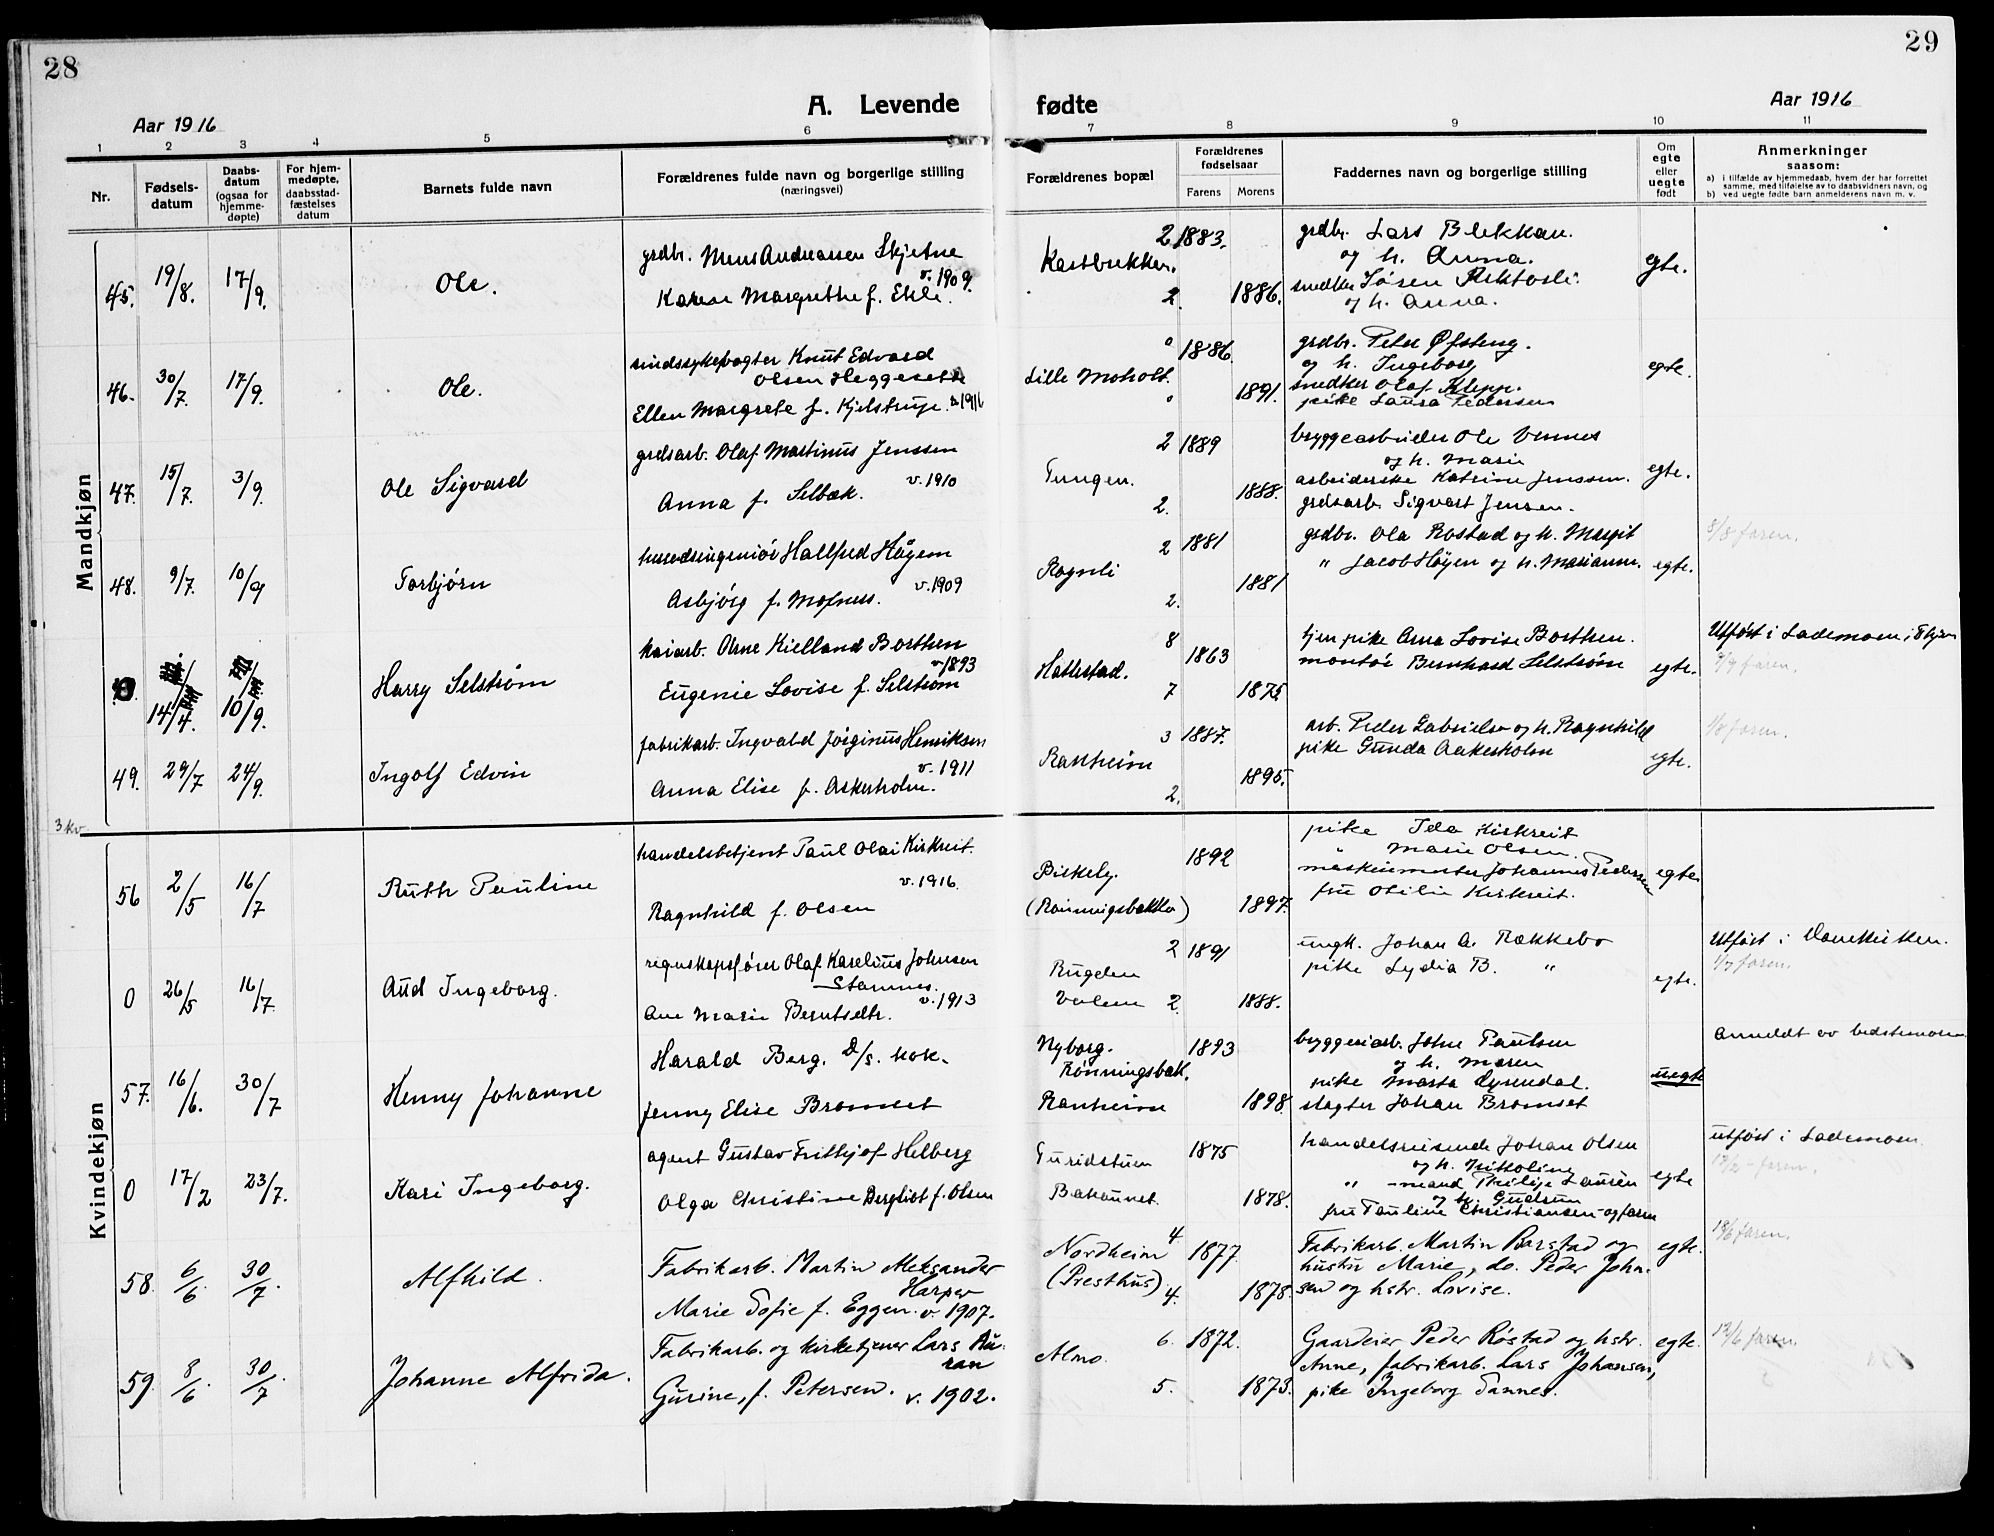 28
29
A. Levende fødte
Aar 1916
Aar 1916
1 2 3 4 5 6 7 8 9 10 11
Nr.
Fødsels-datum
Daabs-datum (ogsaa for hjemme-døpte)
For hjem-medøpte, daabsstad-fæstelses datum
Barnets fulde navn
Forældrenes fulde navn og borgerlige stilling (næringsvei)
Forældrenes bopæl
Forældrenes fødselsaar
Farens Morens
Faddernes navn og borgerlige stilling
Om egte eller uegte født
Anmerkninger saasom:
a) i tilfælde av hjemmedaab, hvem der har forrettet samme, med tilføielse av to daabsvidners navn, og
b) ved uegte fødte barn anmelderens navn m. v.
Mandkjøn
45. 19/8. 17/9. Ole.
grdbr. Andreassen Skjetne v. 1909.
Karen Margrethe f.
2 1883.
2. 1886.
grdbr. Lars Blekkan.
og h. Anna.
snedker
og h. Anna.
egte.
46. 30/7. 17/9. Ole.
sindssykepogter Knut Edvard
Olsen Heggesett
Ellen Margrete f. Kjelstrup. 1916
Lille Moholt.
1886.
1891.
grdbr. Peter Øfsteng.
og h. Ingeborg
snedker Olaf Klepp.
pike Laura Pedersen
egte.
47. 15/7. 3/9. Ole Sigvard
grdsarb. Olaf Martinus Jenssen
Anna f. Selbæk. v. 1910
Tungen.
2 1889
2. 1888.
bryggearbeider Ole
og h. Marie
arbeiderske Katrine Jenssen.
grdsarb. Sigvart Jensen.
egte.
48. 9/7. 10/9 Torbjörn
Hallfred Hågem
Asbjörg f. v. 1909
Ragnli
2 1881
2. 1881
grdbr. Ola Rostad og h. Margit
" Jacob Höyen og h. Mariann.
egte.
8/8 faren.
0. 14/4. 10/9. Harry Selström
kaiarb. Arne Kielland Borthen
v 1893
Eugenie Lovise f. Selström
Hallestad.
8 1863
7 1875
tjen.pike Anna Lovise Borthen.
montör Bernhard Selström
egte.
Utföst i Lademoen i
faren.
49. 29/7 24/9. Ingolf Edvin
fabrikarb. Ingvald Jörginus Henriksen
v. 1911
Anna Elise f. Askerholm.
Ranheim
3 1887.
2. 1895.
arb. Peder Gabrielsen og h. Ragnhild
pike Gunda Aakerholm
egte.
faren.
3 Kv
Kvindekjøn
56 2/5 16/7 Ruth Pauline
handelsbetjent Paul Olai Kirkreit.
v. 1916.
Ragnhild f. Olsen
Birkely.
(Rönningsbakken)
1892
1897.
pike Ida Kirkreit
" Marie Olsen.
maskinmester Johannes Pedersen
fru Otilie Kirkreit.
egte
0 26/5 16/7. Aud Ingeborg.
regnskapsförer Olaf Karelius Johnsen
Stamnes.
v. 1913
Ane Marie Berntsdtr.
Rugden
2 1891
2 1888.
ungk. Johan A. Rækkebo
pike Lydia B. "
egte.
Utföst i Vaarekirken.
faren.
57. 16/6. 30/7 Henny Johanne
Harald Berg. D/s. kok.
Jenny Elise Bromset
Nyborg.
Rönningsbak.
Ranheim
1893
1898.
bryggeriarb. John Paulsen
og h. Maren
pike Marta
slagter Johan Bromset
uegte
Anmeldt av bedstemoren
0 17/2 23/7. Kari Ingeborg.
agent Gustav Fritthjof Helberg
Olga Christine Bergliot f. Olsen
Turidstuen
Bakaunet.
1875
1878.
handelsreisende Johan Olsen
og h. Nikoline
" -mand Laurén
og h. Gudrun
fru Pauline Christiansen og faren
egte
utföst i Lademoen.
12/2 - faren.
58. 6/6 30/7. Alfhild.
Fabrikarb. Martin Aleksander
Harper
Marie Sofie f. Eggen. v. 1907.
Nordheim
(Presthus)
4 1877
4. 1878.
Fabrikarb. Martin Barstad og
hustru Marie, do. Peder John-
sen og hstr. Lovise.
egte.
18/6 faren.
59. 8/6. 30/7. Johanne Alfrida.
Fabrikarb. og kirketjener Lars Au-
ran
Gurine, f. Petersen. v. 1902.
Almo.
6. 1872.
5. 1873.
Gaardeier Peder Röstad og hstr.
Anne, fabrikarb. Lars Johansen,
pike Ingeborg Sannes.
egte.
12/6 faren.